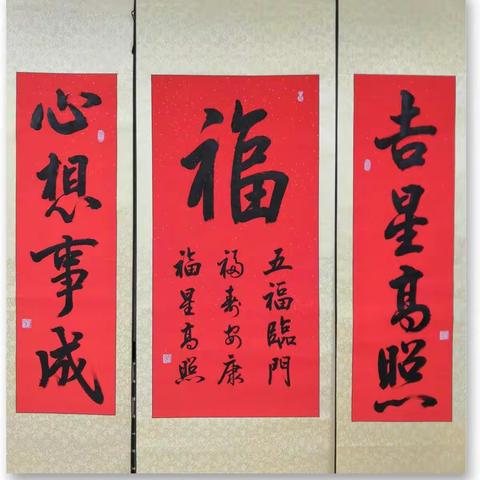 吉星高照
福
五福臨門
福寿安康
福星高照
心想事成